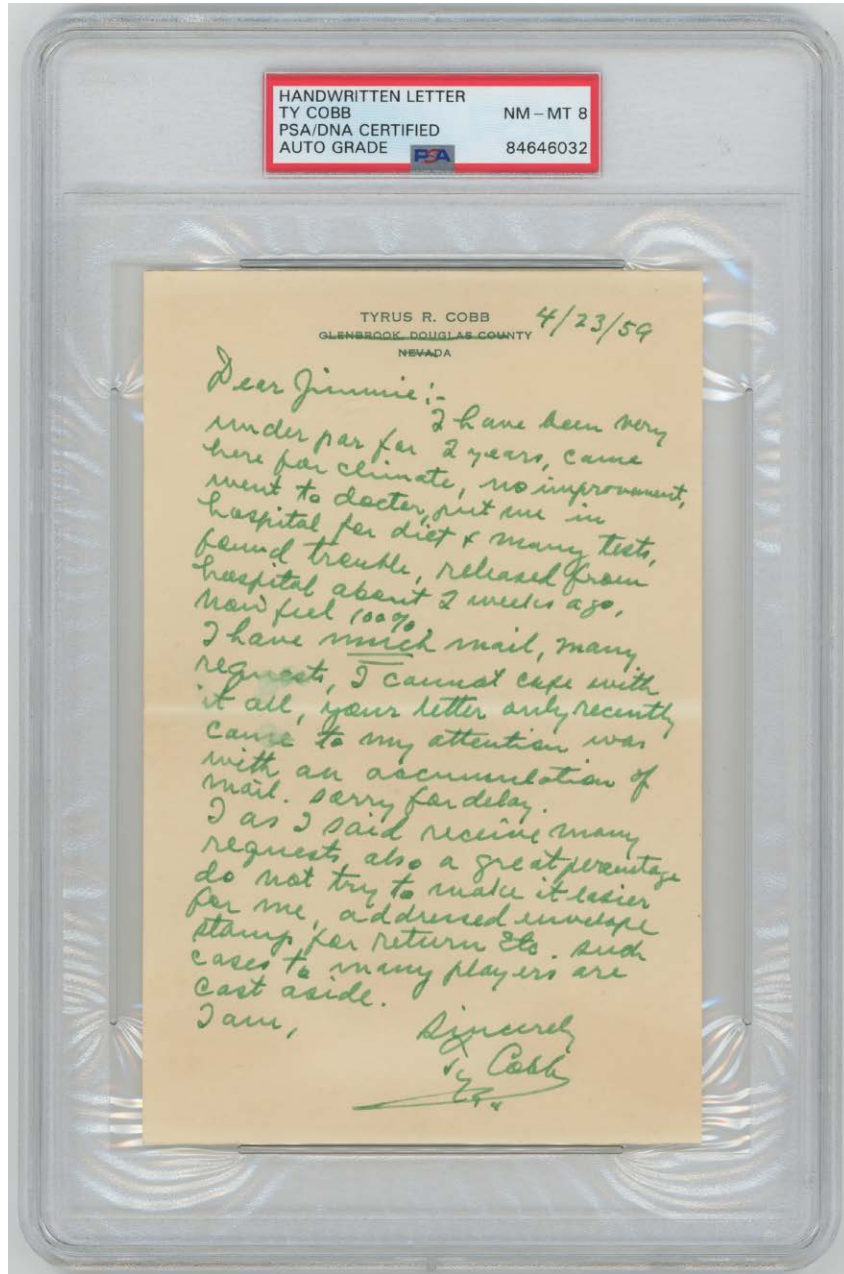 HANDWRITTEN LETTER
TY COBB NM - MT 8
PSA/DNA CERTIFIED
AUTO GRADE PSA 84646032
TYRUS R. COBB 4/23/59
GLENBROOK, DOUGLAS COUNTY
NEVADA
Dear Jimmie:-
I have been very
under par for 2 years, came
here for climate, no improvement,
went to docter, put me in
hospital for diet & many tests,
found trouble, released from
hospital about 2 weeks ago,
now feel 100%
I have much mail, many
requests, I cannot cope with
it all, your letter only recently
came to my attention was
with an accumulation of
mail. sorry for delay.
I as I said receive many
requests, also a great percentage
do not try to make it easier
for me, addressed envelope
stamp for return Etc. such
cases to many players are
cast aside.
I am, Sincerely
Ty Cobb